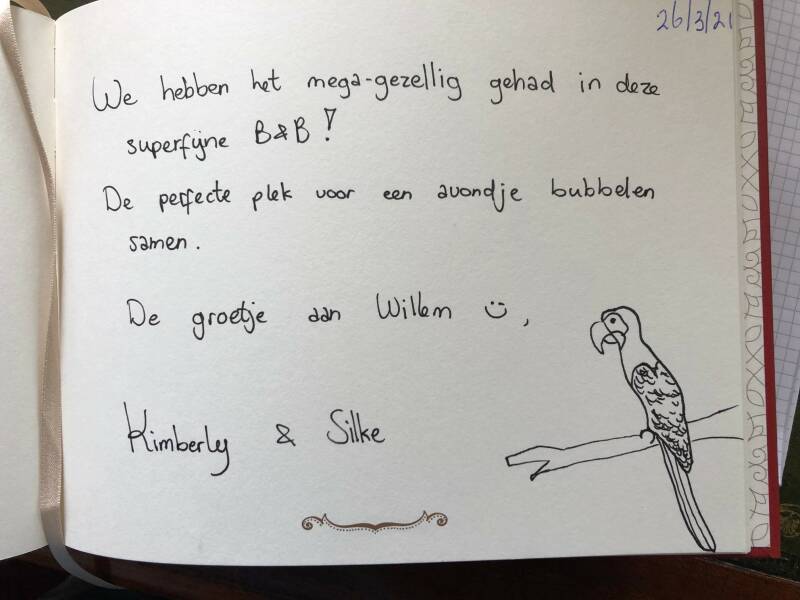 26/3/21
We hebben het mega-gezellig gehad in deze
superfijne B&B!
De perfecte plek voor een avondje bubbelen
samen.
De groetje aan Willem ☺,
Kimberly & Silke